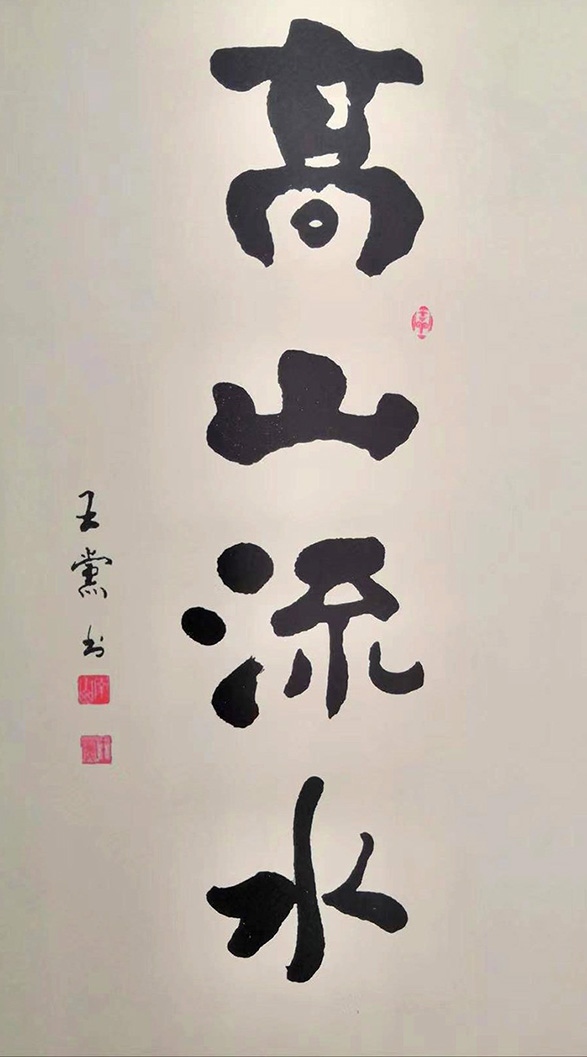 高山流水
王党书